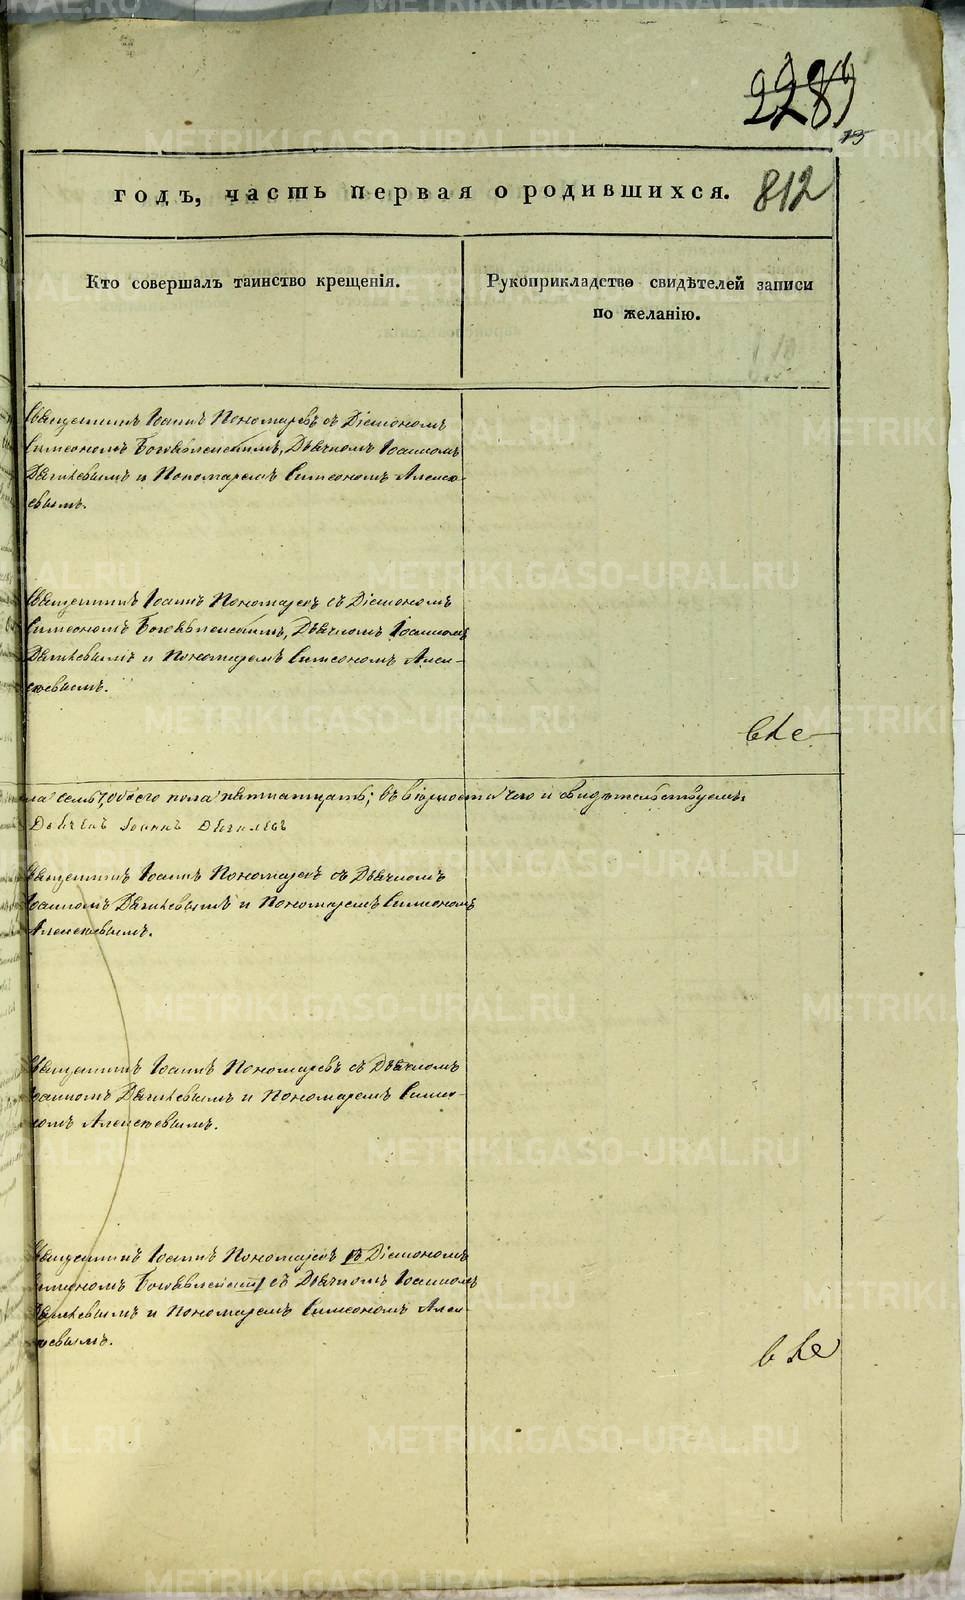 METRIKI.GASO-URAL.RU
2289
15
годъ, часть первая о родившихся.
812
Кто совершалъ таинство крещенія.
Рукоприкладство свидѣтелей записи
по желанію.
Священникъ Іоаннъ Пономаревъ съ Діакономъ
Симеономъ Богоявленскимъ, Дьячкомъ Іоанномъ
и Пономаремъ Симеономъ Алексѣ-
евымъ.
Священникъ Іоаннъ Пономаревъ съ Діакономъ
Симеономъ Богоявленскимъ, Дьячкомъ Іоанномъ
и Пономаремъ Симеономъ Алек-
сѣевымъ.
семь, обоего пола пятнатцать; въ вѣрности чего и свидѣтельствуемъ
Дьячекъ Іоаннъ
Священникъ Іоаннъ Пономаревъ съ Дьячкомъ
Іоанномъ и Пономаремъ Симеономъ
Алексѣевымъ.
Священникъ Іоаннъ Пономаревъ съ Дьячкомъ
Іоанномъ и Пономаремъ Симе-
ономъ Алексѣевымъ.
Священникъ Іоаннъ Пономаревъ съ Діакономъ
Симеономъ Богоявленскимъ съ Дьячкомъ Іоанномъ
и Пономаремъ Симеономъ Алек-
сѣевымъ.